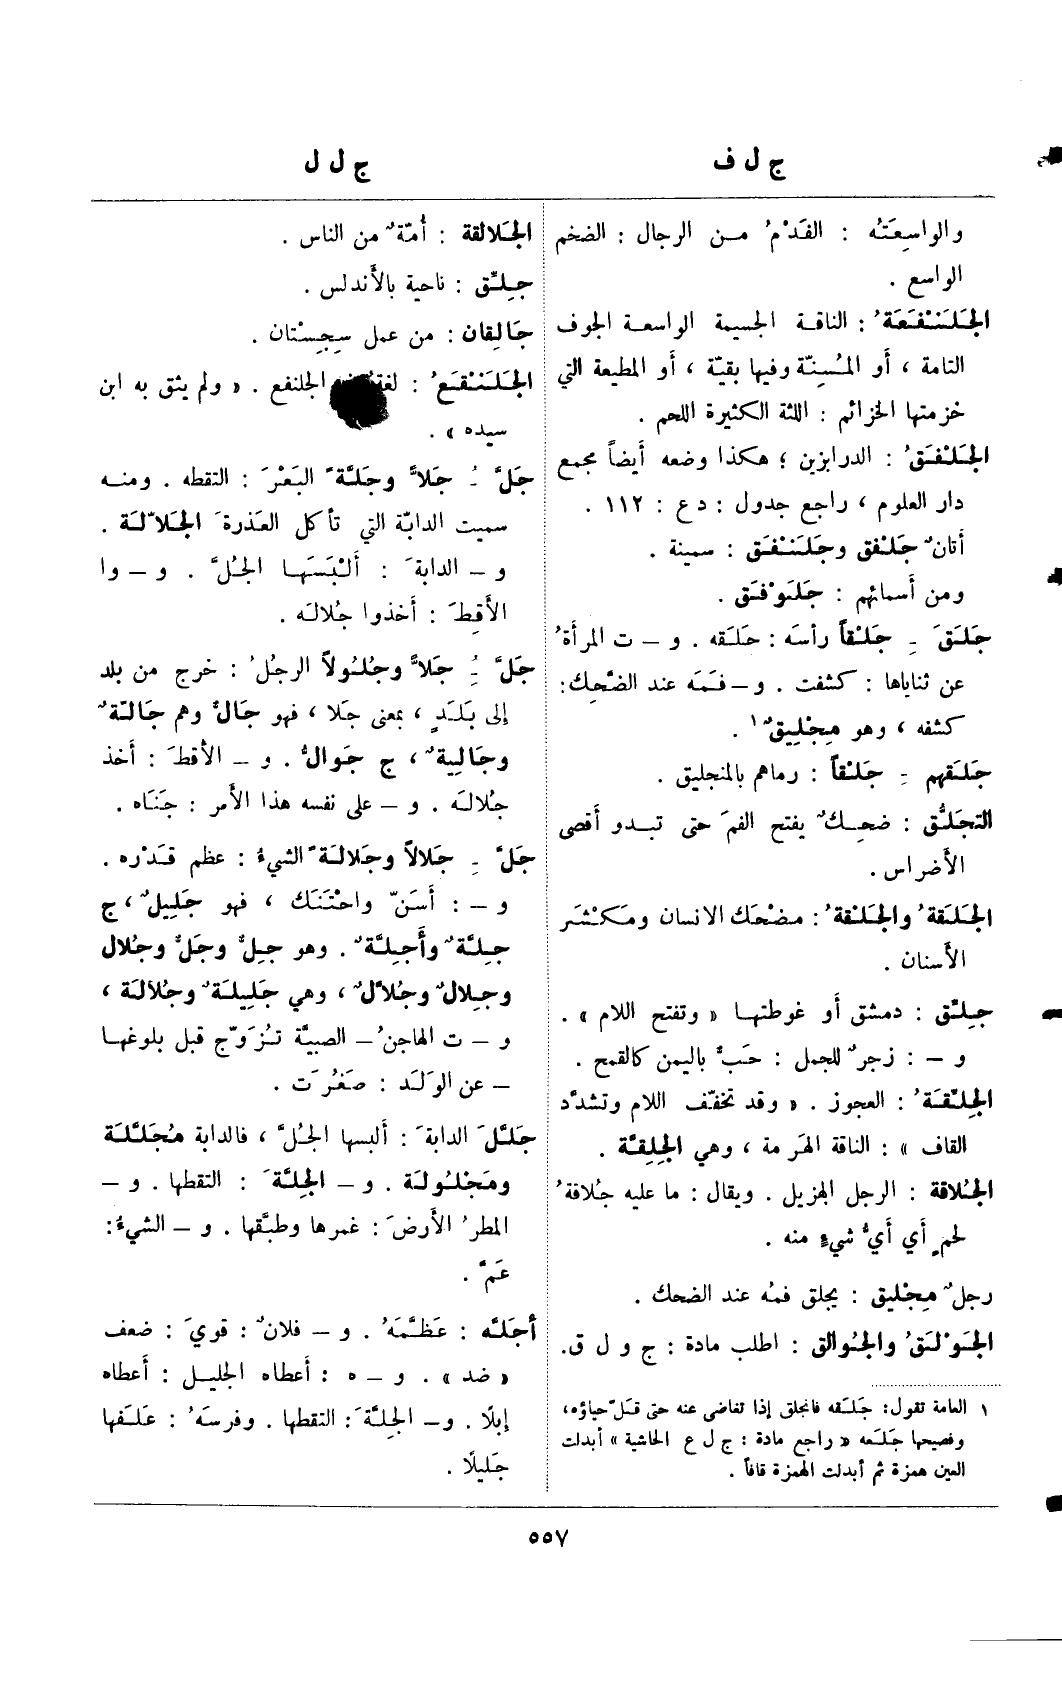 ج ل ف
ج ل ل
والواسِعَتُه : الفَدْمُ من الرجال : الضخم
الواسع .
الجَلَنْفَعَةُ : الناقة الجسيمة الواسعة الجوف
التامة ، أو المُسِنّة وفيها بقيّة ، أو المطيعة التي
خزمتها الخزائم : اللثة الكثيرة اللحم .
الجَلْفَقُ : الدرابزين ؛ هكذا وضعه أيضاً مجمع
دار العلوم ، راجع جدول : د ع : ١١٢ .
أتانٌ جَلْفَق وجَلَنْفَق : سمينة .
ومن أسمائهم : جَلَوْفَق .
جَلَقَ ِ جَلْقاً رأسَه : حَلَقه . و – ت المرأةُ
عن ثناياها : كشفت . و – فَمَه عند الضَّحِك :
كشفه ، وهو مِجْلِيقٌ ١ .
جَلَقهم ِ جَلْقاً : رماهم بالمنجليق .
التجَلُّق : ضحِكٌ يفتح الفمَ حتى تبدو أقصى
الأضراس .
الجَلَقَةُ والجَلْقة : مضْحَك الانسان ومَكْشَر
الأسنان .
جِلِّق : دمشق أو غوطتها « وتفتح اللام » .
و – : زجرٌ للجمل : حَبٌّ باليمن كالقمح .
الجِلِّقَةُ : العجوز . « وقد تخفّف اللام وتشدَّد
القاف » : الناقة الهَرِمة ، وهي الجِلِقَّة .
الجُلاقة : الرجل الهزيل . ويقال : ما عليه جُلاقةُ
لحمٍ أي أيُّ شيءٍ منه .
رجلٌ مِجْليق : يجلق فمَه عند الضحك .
الجَوْلَقُ والجُوالق : اطلب مادة : ج و ل ق.
١ العامة تقول : جَلَقه فانجلق إذا تغاضى عنه حتى قَلّ حياؤه،
وفصيحها جَلَعه « راجع مادة : ج ل ع الحاشية » أبدلت
العين همزة ثم أبدلت الهمزة قافاً .
الجَلالقة : أُمّةٌ من الناس .
جِلِّق : ناحية بالأندلس .
جَالِقان : من عمل سِجِسْتان .
الجَلَنْقَعُ : الجلنفع . « ولم يثق به ابن
سيده » .
جَلَّ ُ جَلاًّ وجَلَّةً البَعْرَ : التقطه . ومنه
سميت الدابّة التي تأكل العَذرةَ الجَلاّلَة .
و – الدابةَ : ألبَسَها الجُلَّ . و – وا
الأقِطَ : أخذوا جُلالَه .
جَلَّ ُِ جَلاًّ وجُلُولاً الرجلُ : خرج من بلد
إلى بَلَدٍ ، بمعنى جَلا ، فهو جَالٌّ وهم جَالّةٌ
وجَالِيةٌ ، ج جَوالٌّ . و – الأقطَ : أخذ
جُلالَه . و – على نفسه هذا الأمر : جَنَاه .
جَلَّ ِ جَلالاً وجَلالةً الشيءُ : عظم قَدْره .
و – : أسَنّ واحْتَنَك ، فهو جَلِيلٌ ، ج
جِلَّةٌ وأَجِلَّةٌ . وهو جِلٌّ وجَلٌّ وجُلال
وجِلالٌ وجُلاّلٌ ، وهي جَلِيلةٌ وجُلالَة ،
و – ت الهاجنُ – الصبيَّة تُزَوّج قبل بلوغها
– عن الوَلَد : صَغُرَت .
جَلَّلَ الدابةَ : ألبسها الجُلَّ ، فالدابة مُجَلَّلَة
ومَجْلُولَة . و – الجِلَّةَ : التقطها . و –
المطرُ الأرضَ : غمرها وطبَّقها . و – الشيءُ :
عَمَّ .
أجَلَّه : عَظَّمَهُ . و – فلانٌ : قويَ : ضعف
« ضد » . و – ه : أعطاه الجليل : أعطاه
إبلًا . و – الجِلَّةَ : التقطها . وفرسَهُ : عَلَفها
جَليلًا .
٥٥٧